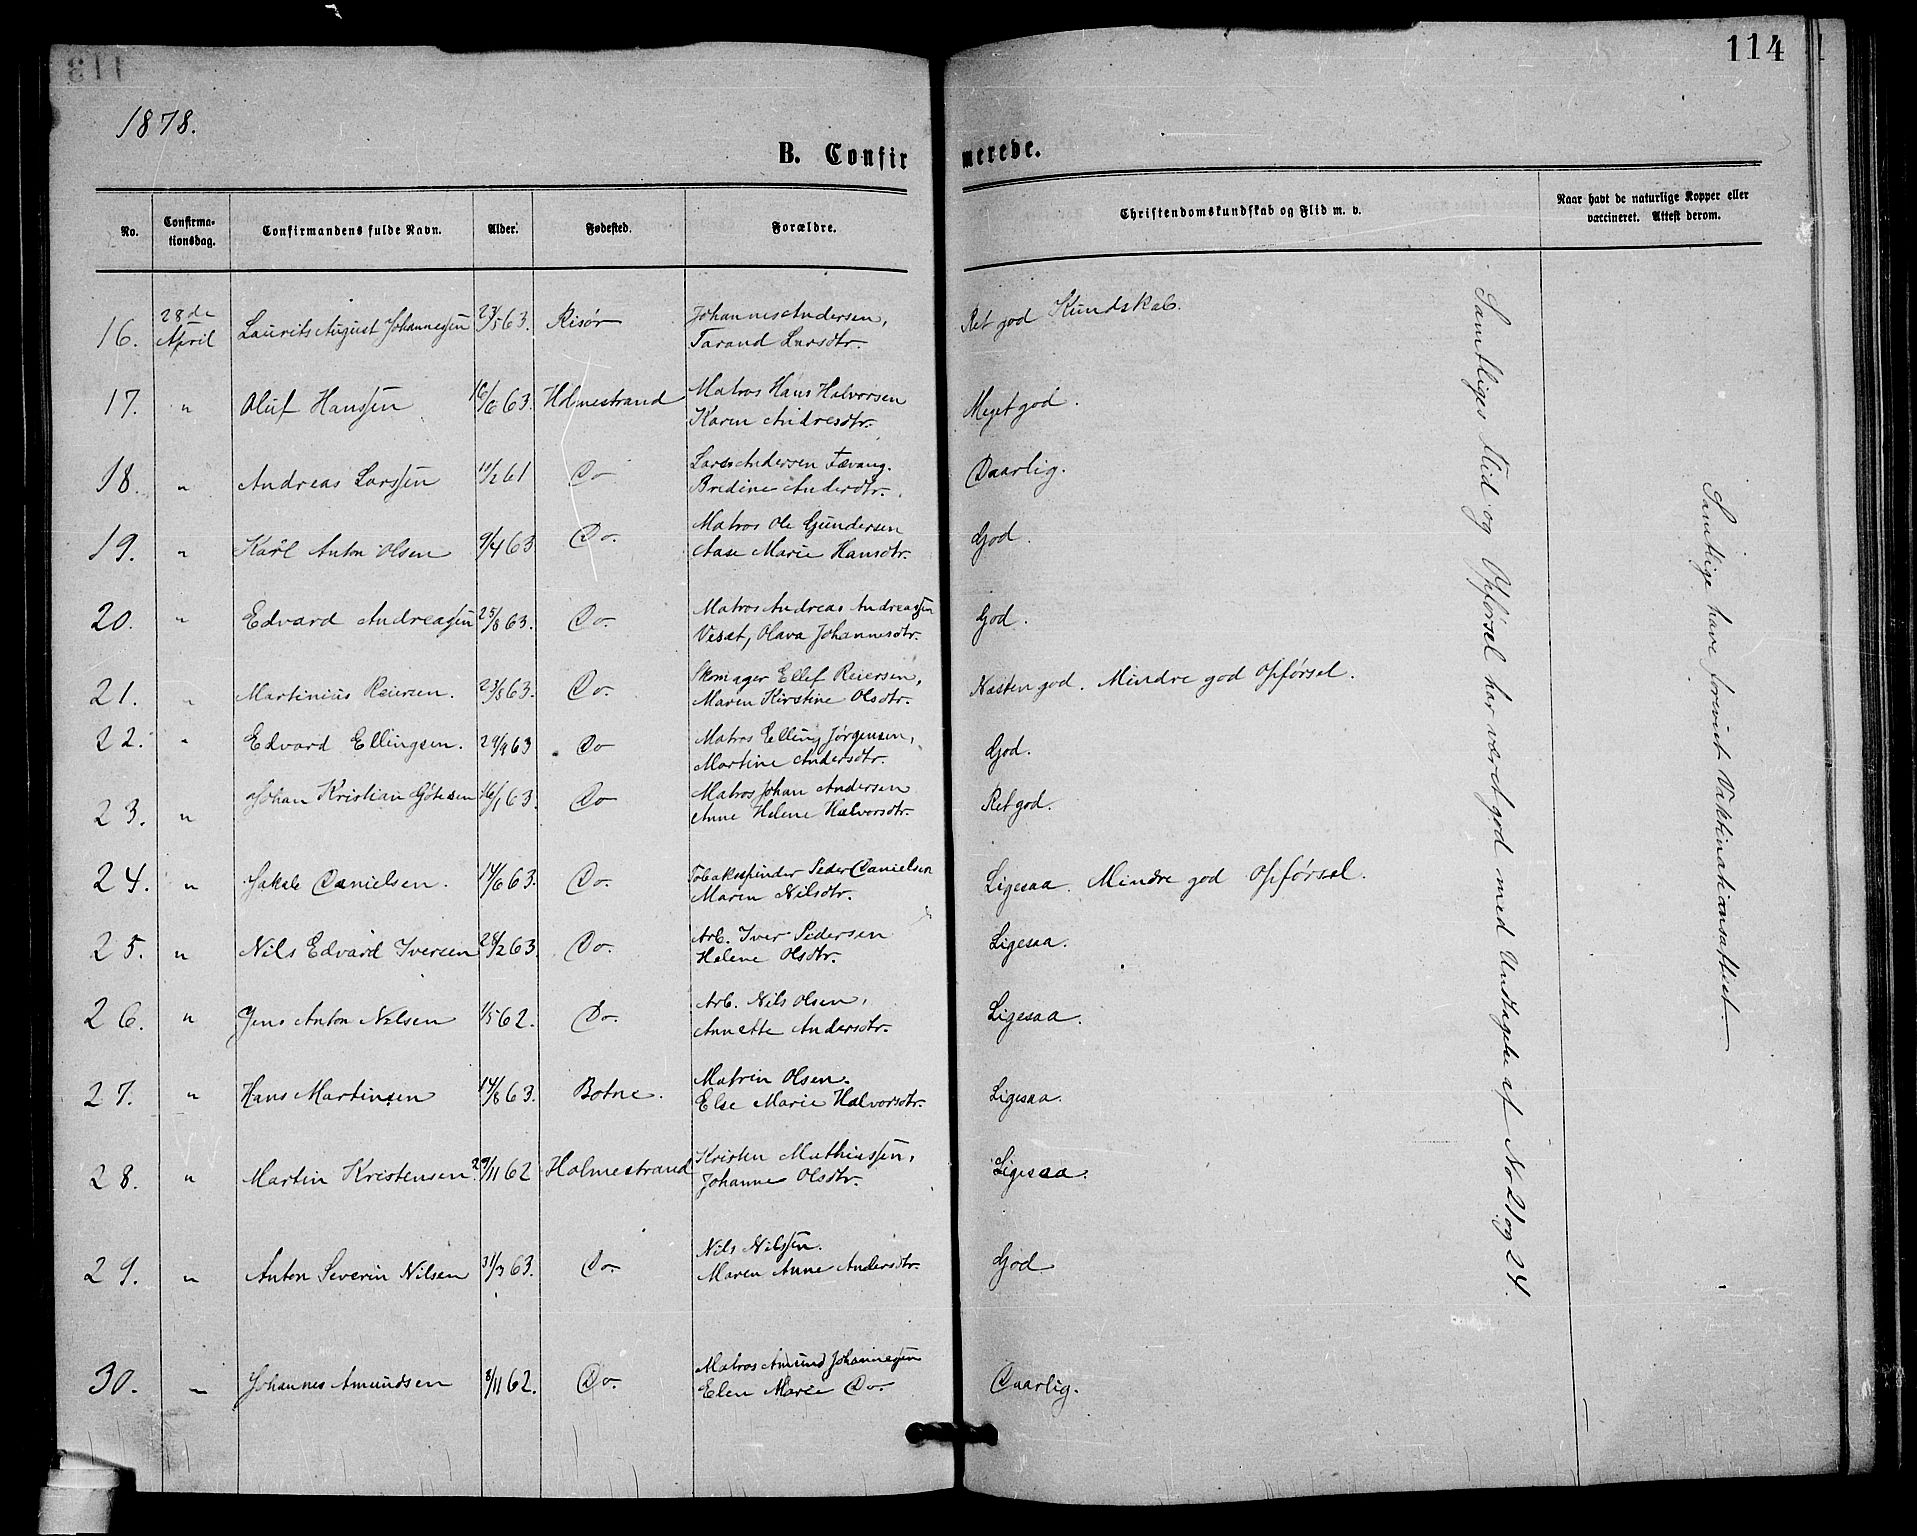 114
1878.
B. Confirmerede.
No. Confirmationsdag. Confirmandens fulde Navn. Alder. Fødested. Forældre. Christendomskundskab og Flid m. v. Naar havt de naturlige Kopper eller vaccineret. Attest derom.
16. 28de April Laurits August Johannesen 23/5 63. Risør Johannes Andersen, Ret god Kundskab.
Tarand Larsdtr.
17. " Oluf Hansen 16/6 63. Holmestrand Matros Hans Halvorsen Meget god.
Karen Andresdtr.
18. " Andreas Larsen 10/2 61 Do Lars Andersen Daarlig.
Bredine Andersdtr.
19. " Karl Anton Olsen 9/4 63 Do. Matros Ole Gundersen God.
Aase Marie Hansdtr.
20. " Edvard Andreasen 25/8 63. Do. Matros Andreas Andreasen God.
Olava Johannesdtr.
21. " Martinius Reiersen. 23/8 63. Do. Skomager Ellef Reiersen, Næsten god. Mindre god Opførsel.
Maren Kirstine Olsdtr.
22. " Edvard Ellingsen. 63 Do Matros Elling Jørgensen, God.
Martine Andersdtr.
23. " Johan Kristian 16/1 63. Do Matros Johan Andersen Ret god.
Anne Helene Halvorsdtr.
24. " Jakob Danielsen. 14/6 63. Do. Tobaksspinder Peder Danielsen Ligesaa. Mindre god Opførsel.
Maren Nilsdtr.
25. " Nils Edvard Iversen 28/2 63. Do. Arb. Iver Pedersen Ligesaa.
Helene Olsdtr.
26. " Jens Anton Nilsen 1/5 62. Do. Arb. Nils Olsen, Ligesaa.
Annette Andersdtr.
27. " Hans Martinsen 14/8 63. Botne. Matrin Olsen. Ligesaa.
Else Marie Halvorsdtr.
28. " Martin Kristensen 29/11 62 Holmestrand Kristen Mathiassen, Ligesaa.
Johanne Olsdtr.
29. " Anton Severin Nilsen 31/3 63. Do. Nils Nilssen. God.
Maren Anne Andersdtr.
30. " Johannes Amundsen 8/11 62. Do. Matros Amund Johannesen Daarlig.
Elen Marie Do.
Samtliges Flid og Opførsel har været god med Undtagelse af No 21 og 24.
Samtlige have forevist Vaktinationsattest